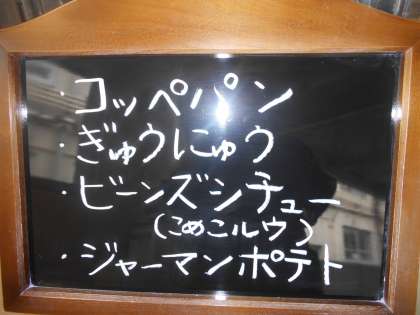 ・コッペパン
・ぎゅうにゅう
・ビーンズシチュー
(こめこルウ)
・ジャーマンポテト